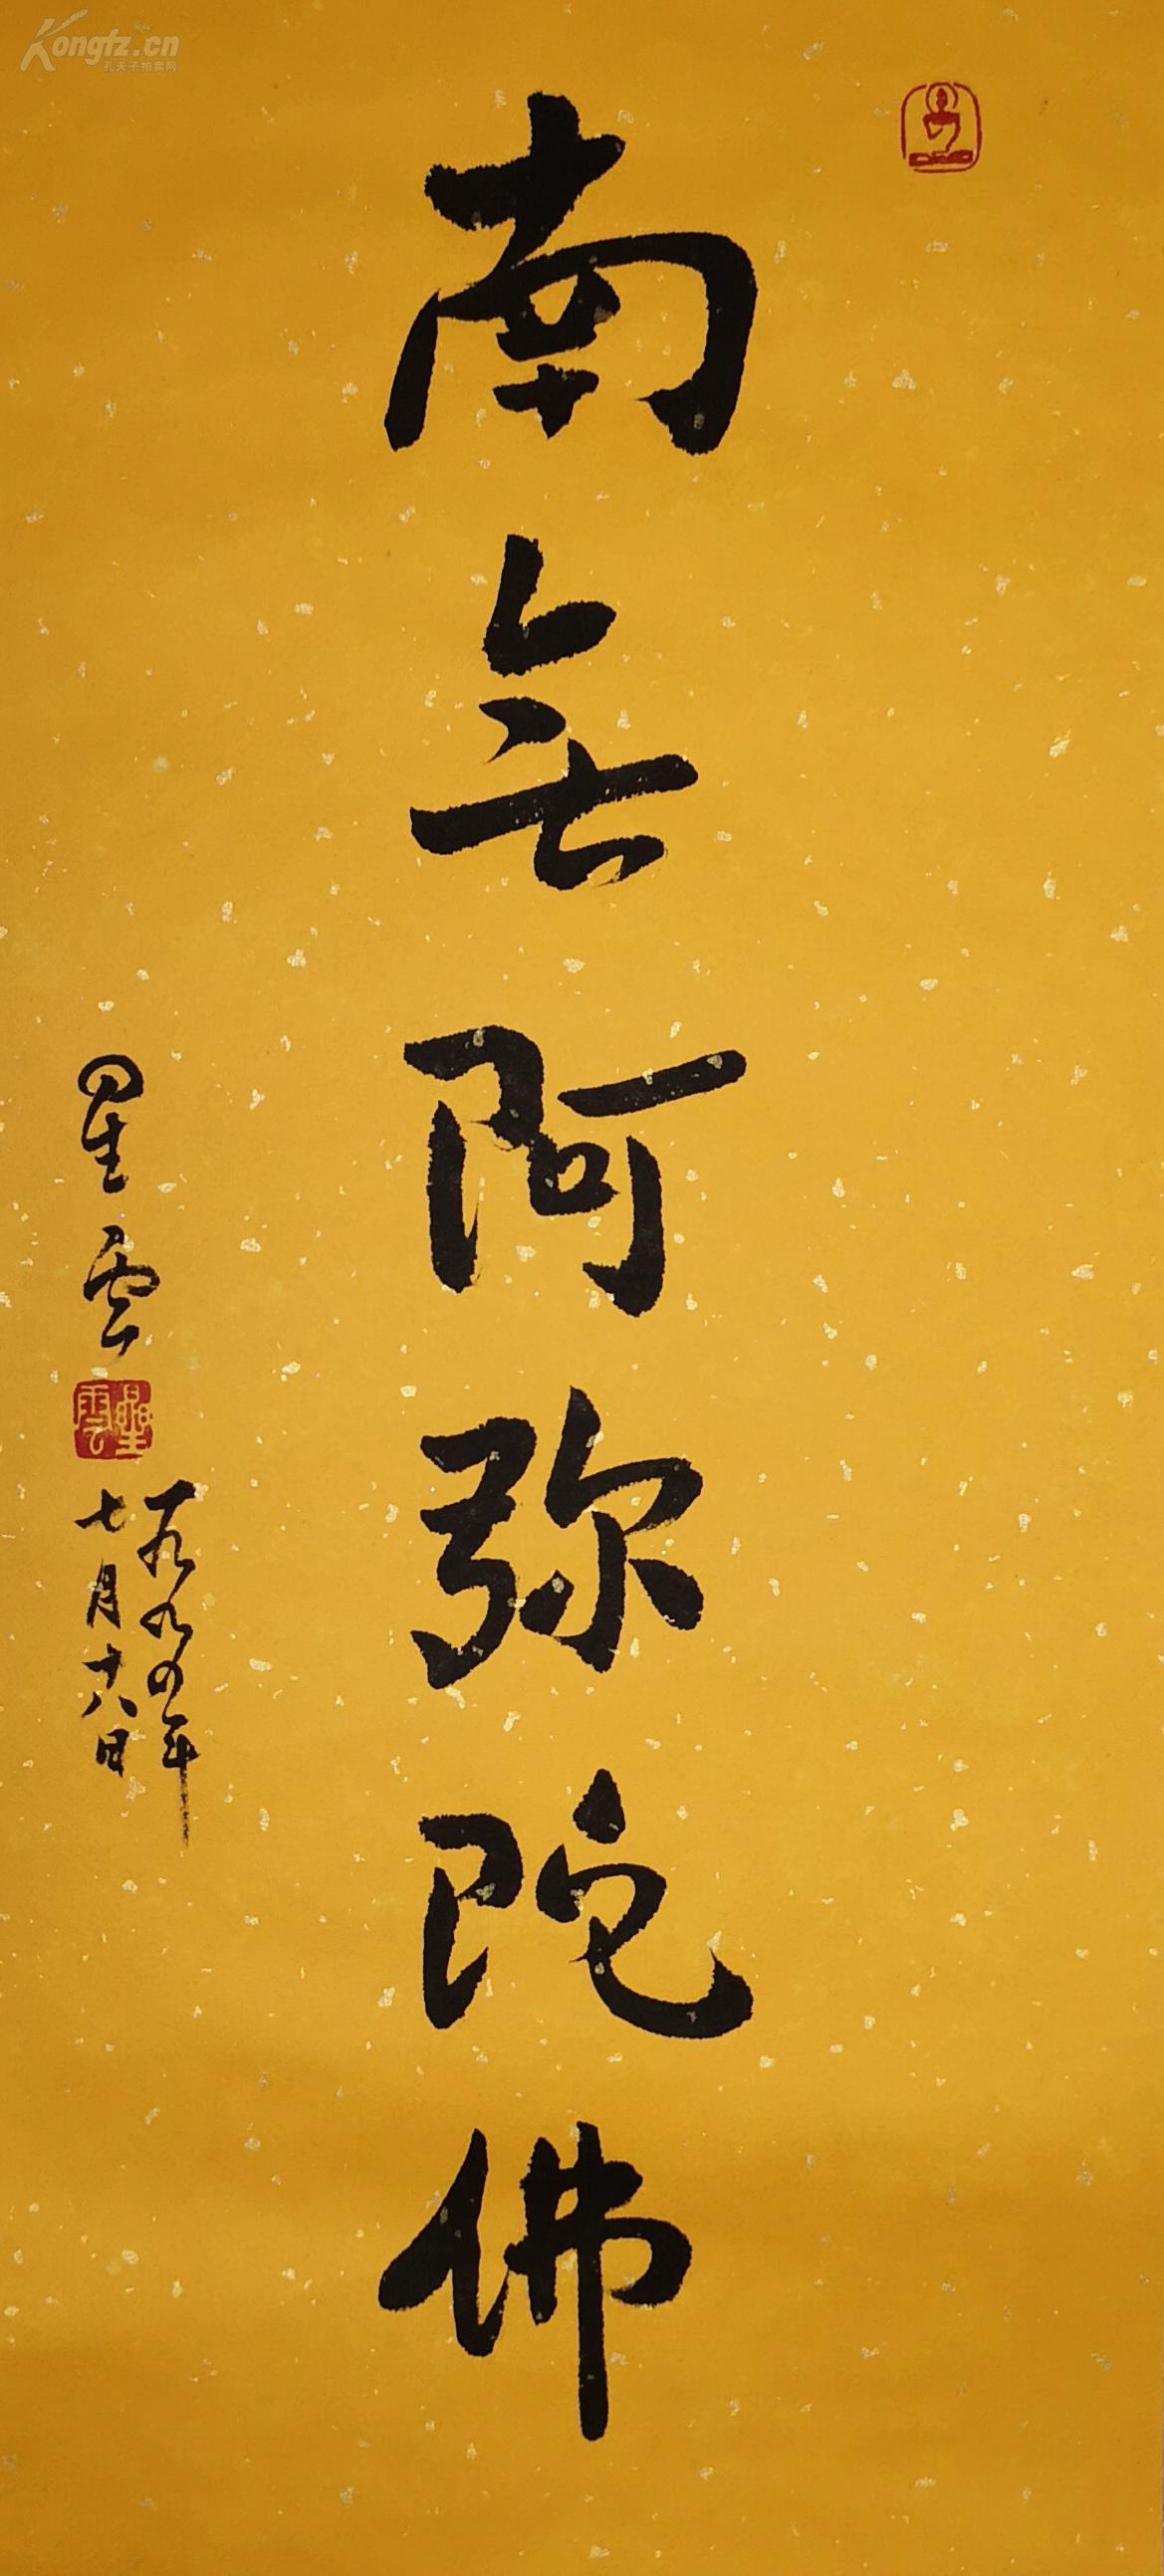 Kongfz.cn
孔夫子拍卖网
南无阿弥陀佛
星雲
星雲
一九九四年
七月十八日